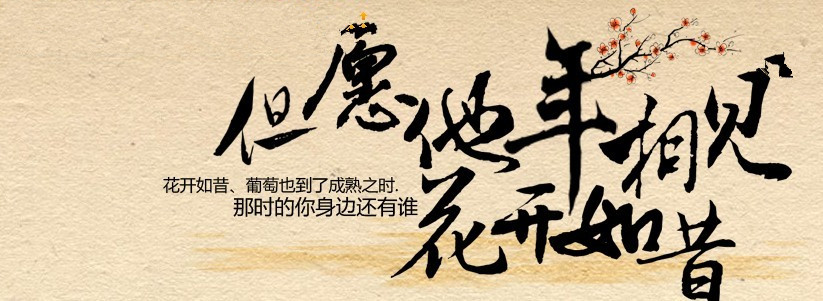 但愿他年相见
花开如昔
花开如昔、葡萄也到了成熟之时.
那时的你身边还有谁